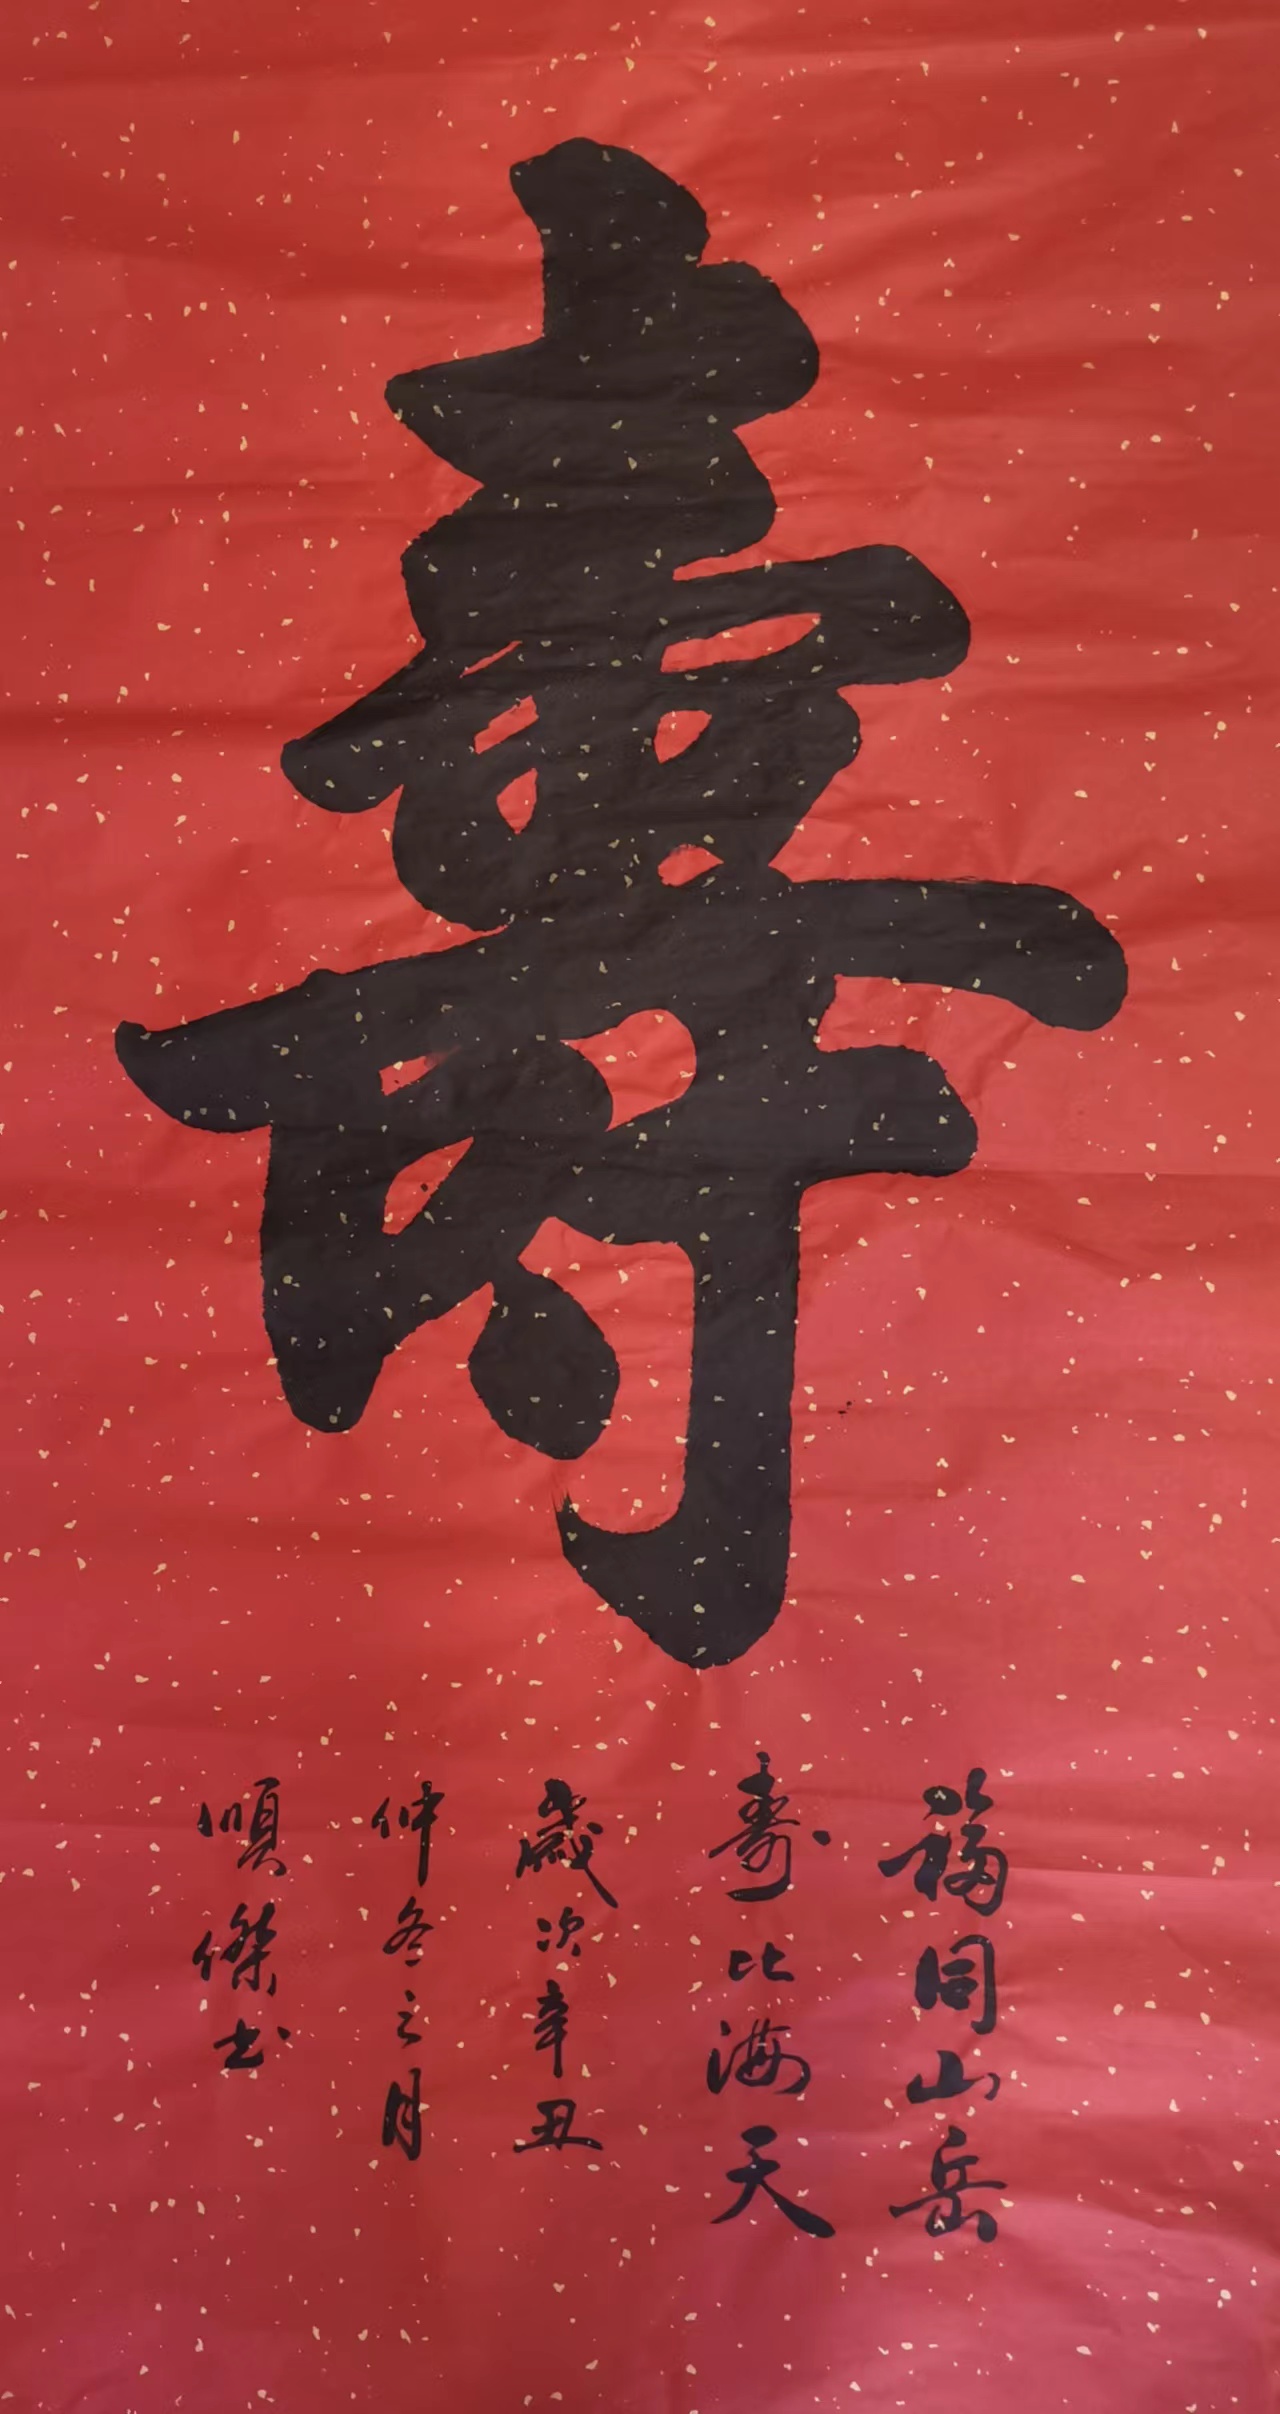 壽
福同山岳
壽比海天
歲次辛丑
仲冬之月
順傑书